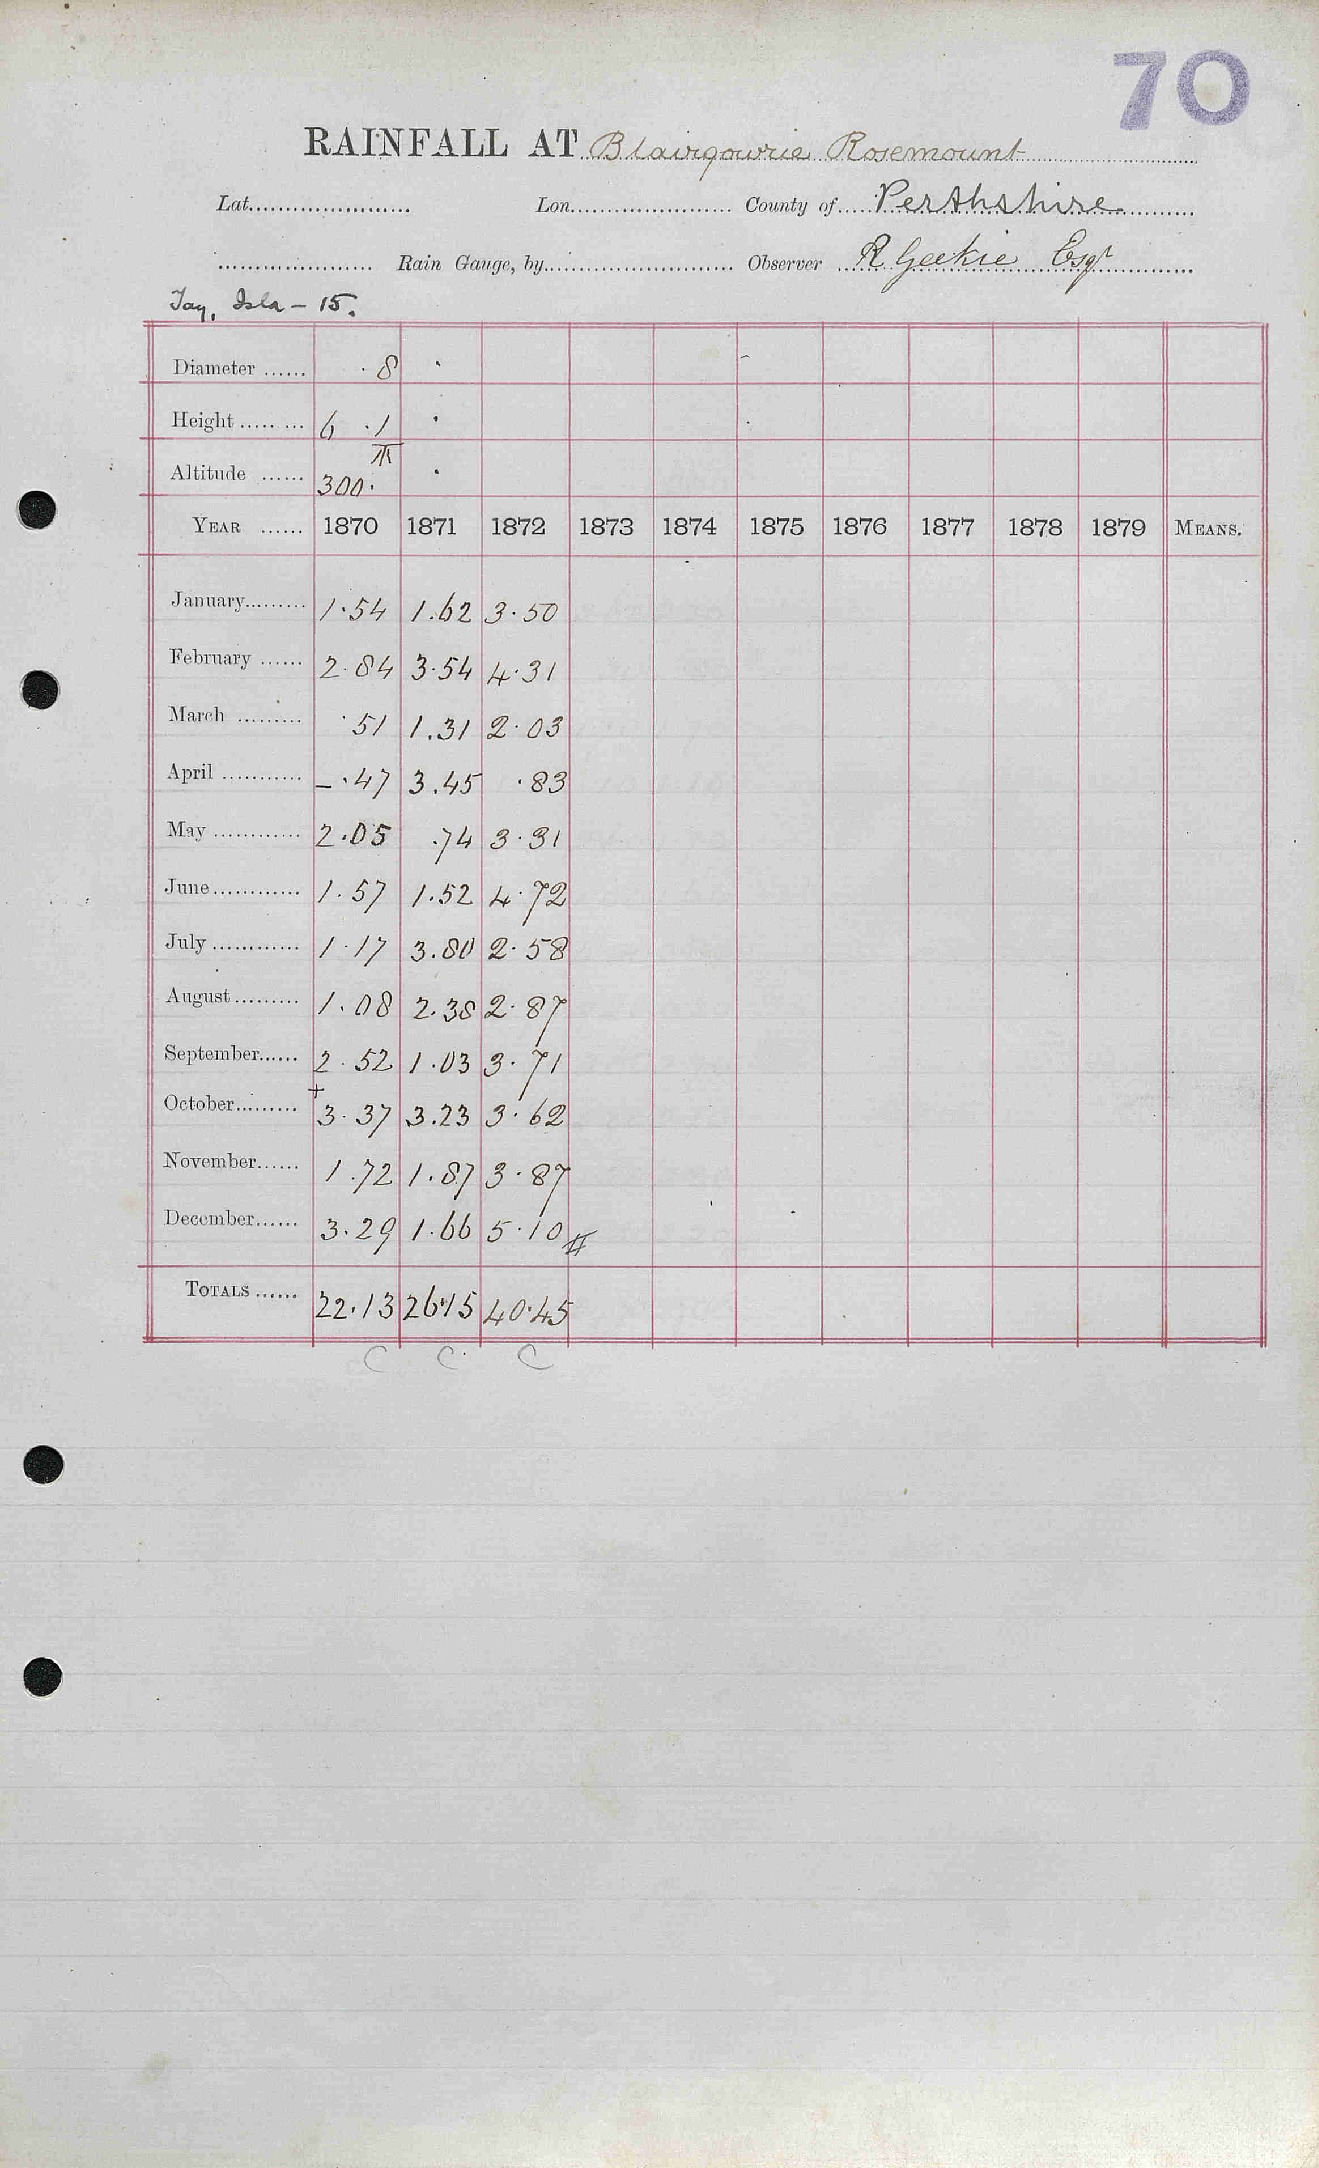 70
RAINFALL AT Blairgowrie Rosemount
Lat. Lon. County of Perthshire
Rain Gauge, by Observer R Geekie Esqr
Tay, Isla – 15.
Diameter ...... 8
Height ........ 6 .1
Altitude ...... 300.
YEAR ...... 1870 1871 1872 1873 1874 1875 1876 1877 1878 1879 MEANS.
January......... 1.54 1.62 3.50
February ...... 2.84 3.54 4.31
March ......... .51 1.31 2.03
April ........... –.47 3.45 .83
May ............ 2.05 .74 3.31
June............ 1.57 1.52 4.72
July ............ 1.17 3.80 2.58
August......... 1.08 2.38 2.87
September...... 2.52 1.03 3.71
October......... +3.37 3.23 3.62
November...... 1.72 1.87 3.87
December...... 3.29 1.66 5.10 II
TOTALS ...... 22.13 26.15 40.45
C C C